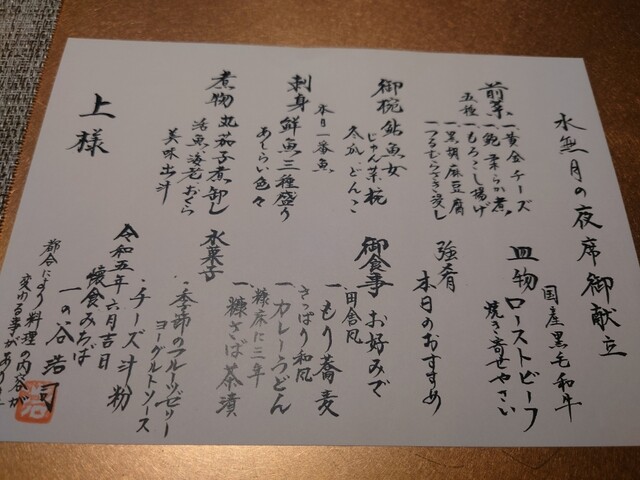 水無月の夜席御献立
前菜
五種
一、黄金チーズ
一、鮑柔らか煮
一、もろこし揚げ
一、黒胡麻豆腐
一、つるむらさき浸し
御椀 鮎魚女
じゅん菜椀
冬瓜、どんこ
本日一番魚
刺身 鮮魚三種盛り
あしらい色々
煮物 丸茄子煮卸し
活魚、海老、おくら
美味出汁
上様
国産黒毛和牛
皿物 ローストビーフ
焼き寄せやさい
強肴
本日のおすすめ
御食事 お好みで
田舎風
一、もり蕎麦
さっぱり和風
一、カレーうどん
糠床に三年
一、糠さば茶漬
水菓子
・季節のフルーツゼリー
ヨーグルトソース
・チーズ汁粉
令和五年六月吉日
懐食みちば
一の谷浩司
都合により料理の内容が
変わる事があります